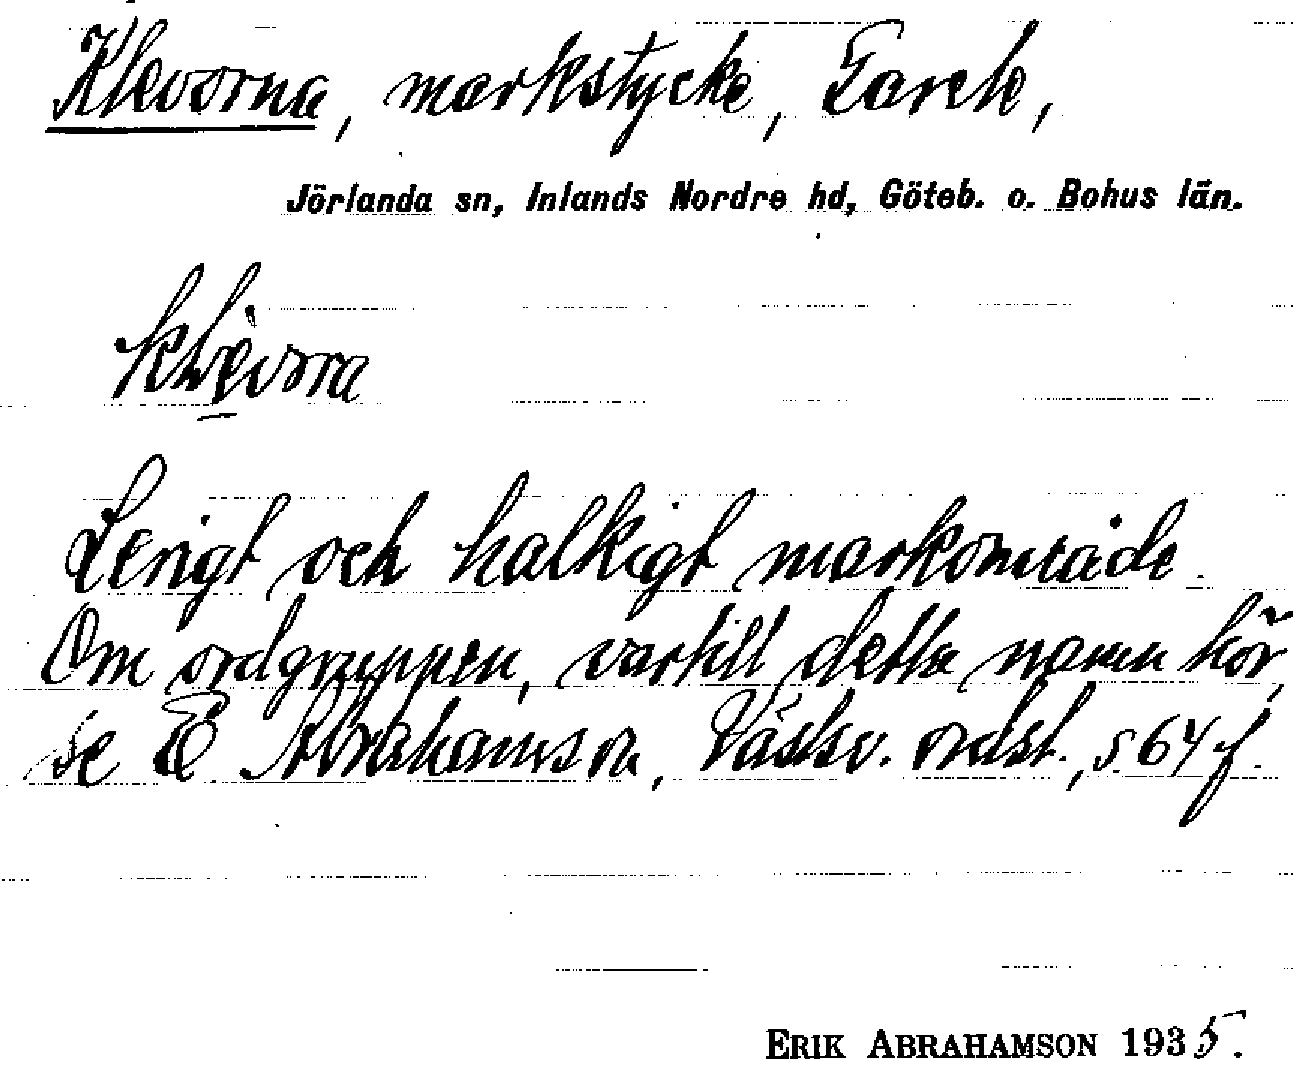 Klevorna, markstycke, Tareby,
Jörlanda sn, Inlands Nordre hd, Göteb. o. Bohus län.
klèvora
Lerigt och halkigt markområde.
Om ordgruppen, vartill detta namn hör,
se E Abrahamson, Västsv. ordst., s. 64 f.
ERIK ABRAHAMSON 1935.